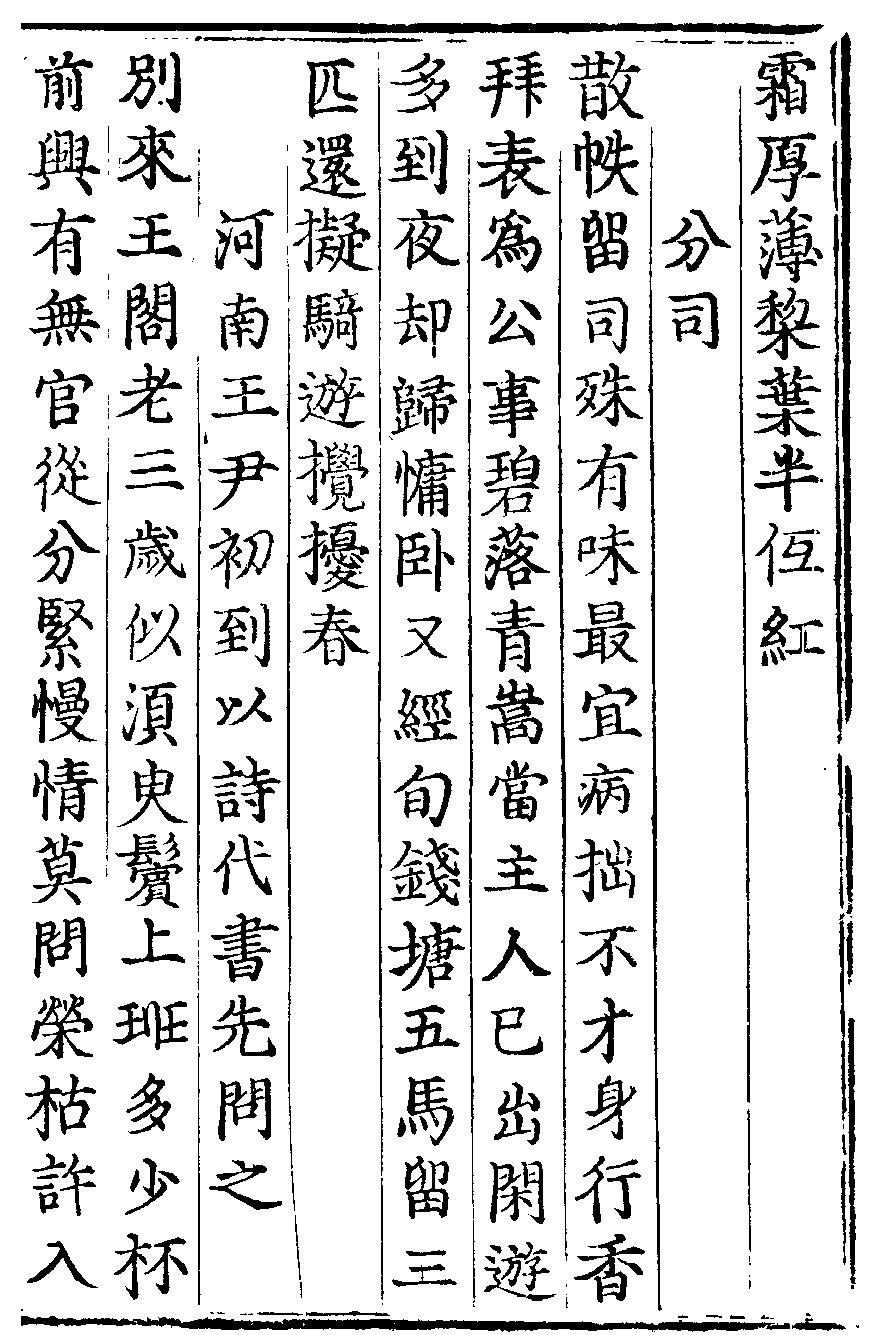 霜厚薄棃葉半低紅
分司
散帙留司殊有味最宜病拙不才身行香
拜表爲公事碧落青嵩當主人已出閑遊
多到夜却歸慵卧又經旬錢塘五馬留三
匹還擬騎遊攪擾春
河南王尹初到以詩代書先問之
別來王閣老三歲似湏臾鬢上斑多少杯
前興有無官從分緊慢情莫問榮枯許入